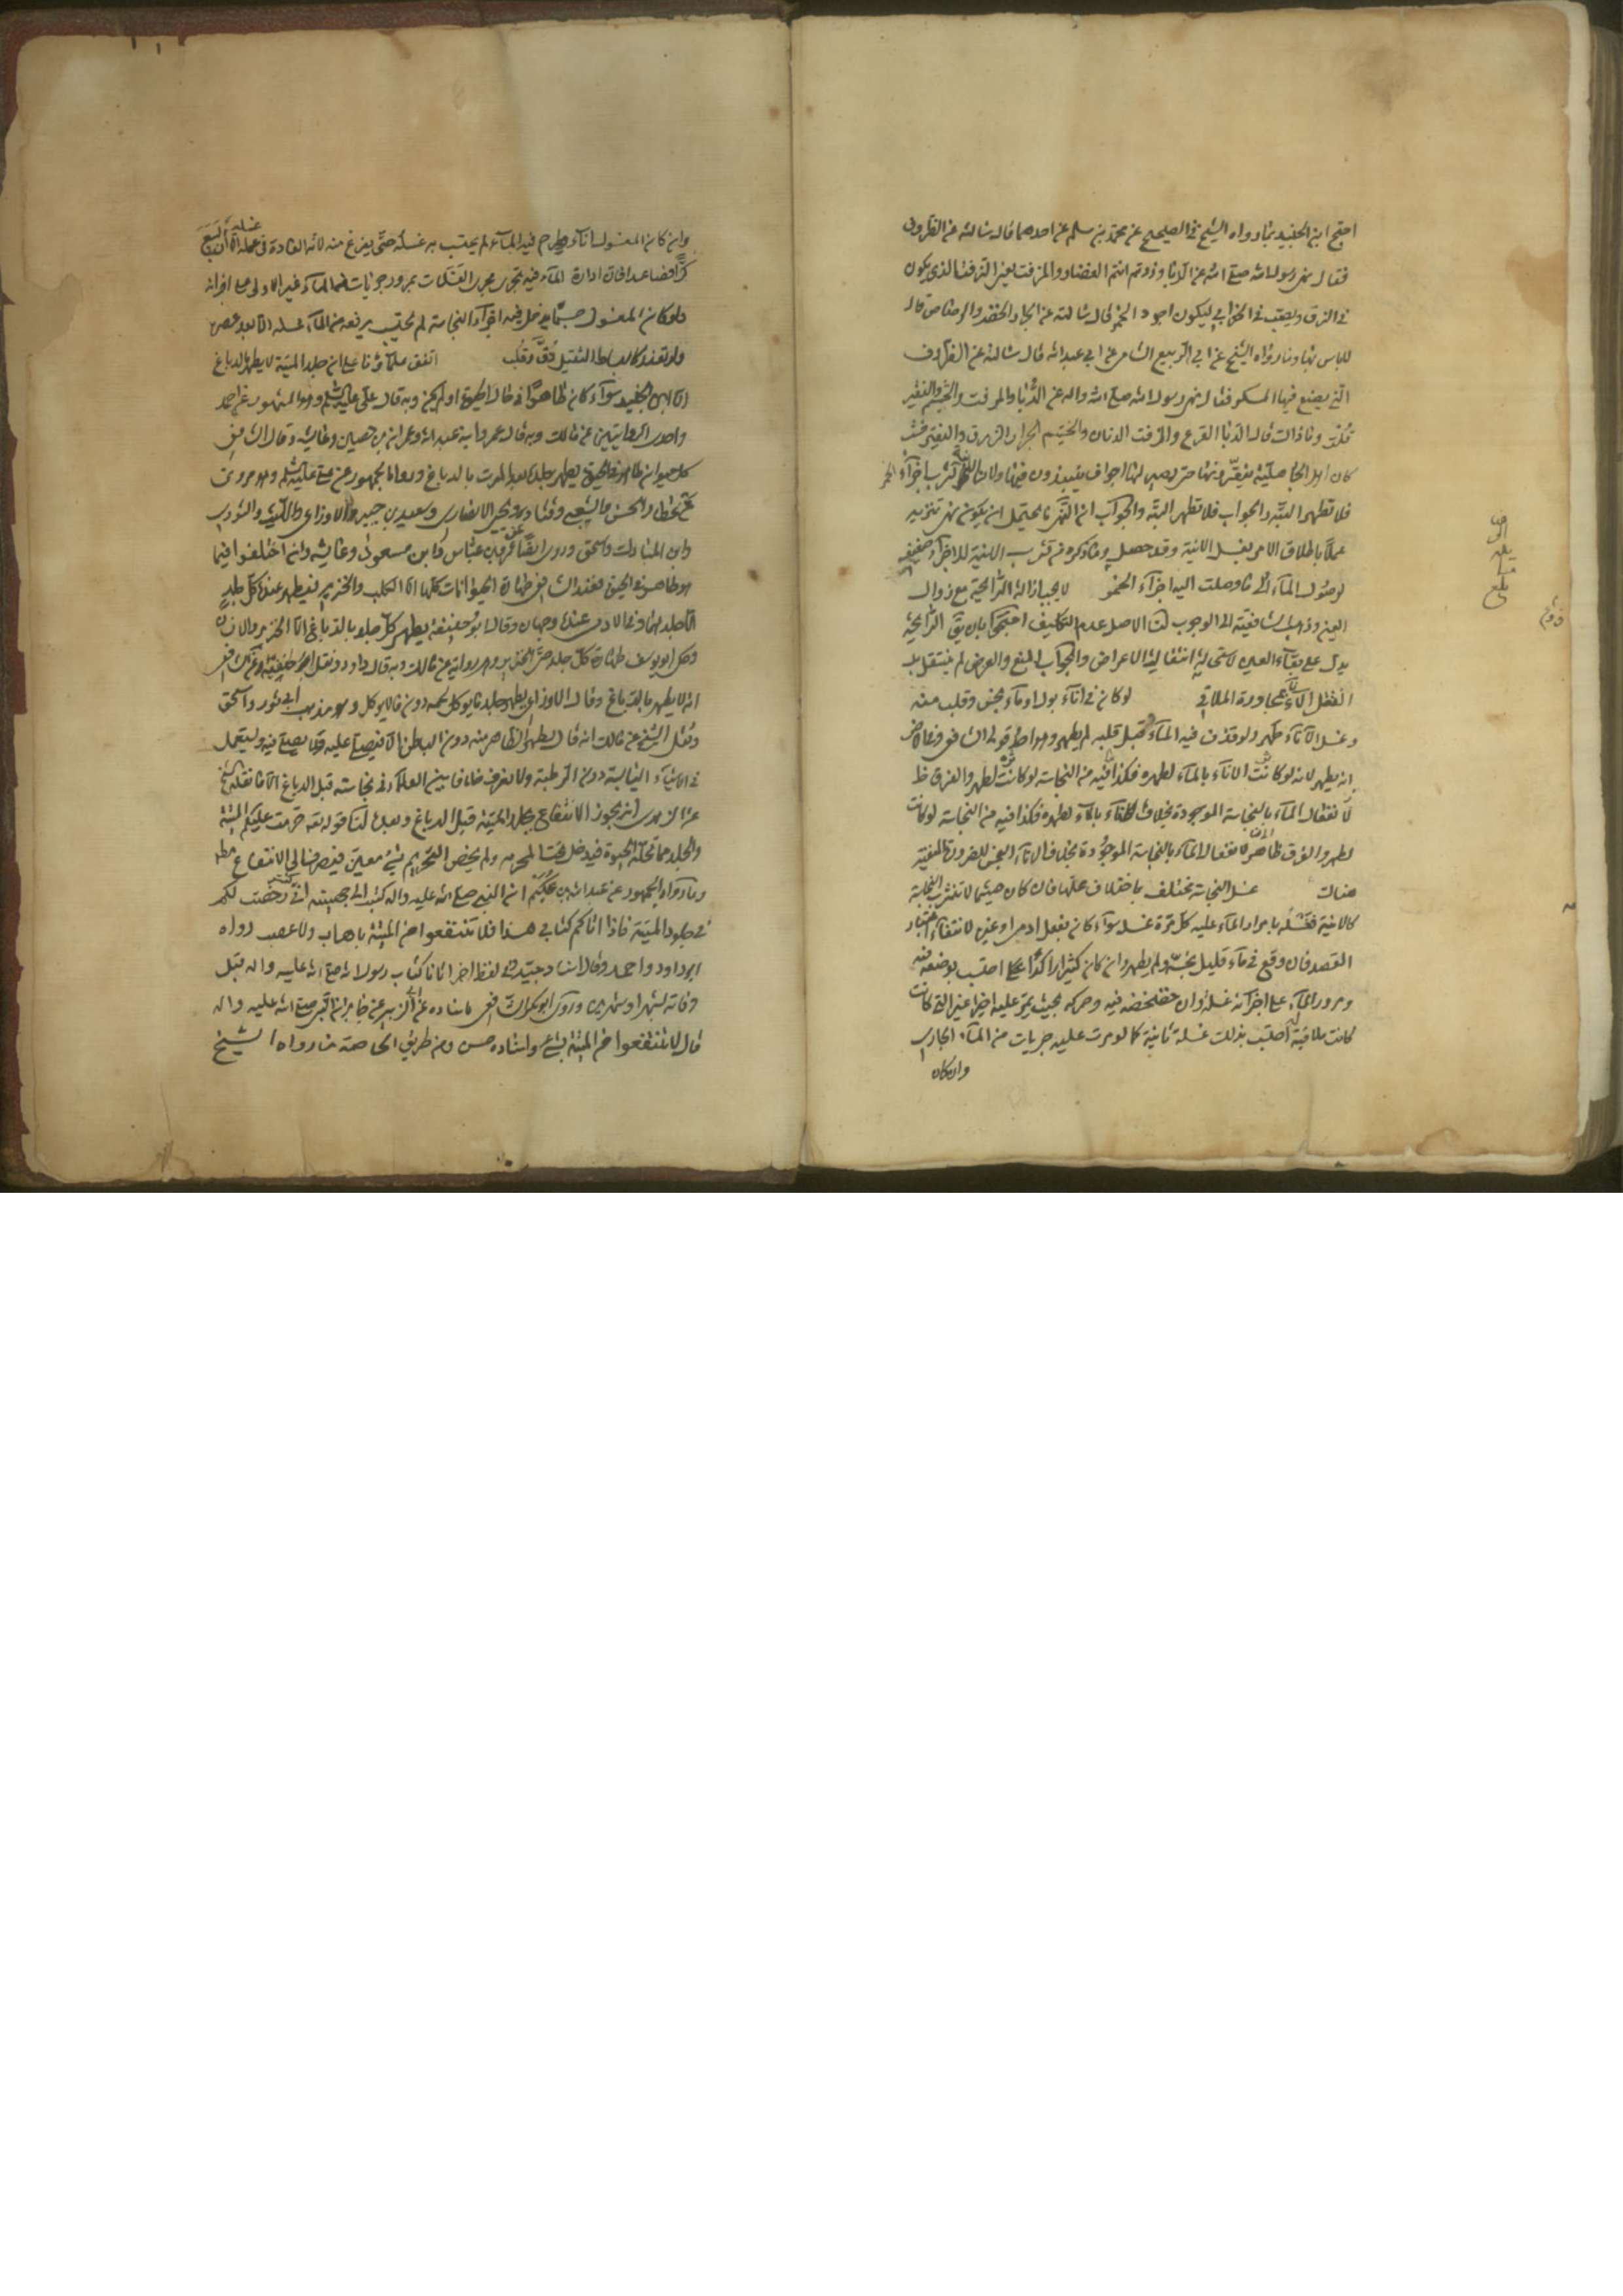 احتج ابن الجنيد بما رواه الشيخ في الصحيح عن محمد بن مسلم عن احدهما قال سالته عن الظروف
فقال نهى رسول الله صلى الله عن الدبا وزدتم انتم الغضار والمزفت يعني الزفت الذي يكون
في الزق ويصب في الخوابي ليكون اجود الخمر قال سالته عن الجرار الخضر والرصاص قال
لا باس بها وما رواه الشيخ عن ابي الربيع الشامي عن ابي عبد الله قال سالته عن الظروف
التي يصنع فيها المسكر فقال نهى رسول الله صلى الله واله عن الدبا والمزفت والحنتم والنقير
قلت وما ذاك قال الدبا القرع والمزفت الدنان والحنتم الجرار الزرق والنقير خشب
كان اهل الجاهلية ينقرونها حتى يصير لها اجواف ينبذون فيها ولان اجزاء الخمر
فلا تطهر البتة والجواب ان النهى يحتمل ان يكون نهى تنزيه
عملا باطلاق الامر بغسل الانية وقد حصل وما ذكره من تشرب الانية للاجزاء ضعيف
لوصول الماء الى ما وصلت اليه اجزاء الخمر لا يجب ازالة الرائحة مع زوال
العين وذهب الشافعية الى الوجوب لنا الاصل عدم التكليف احتجوا بان بقاء الرائحة
يدل على بقاء العين لاستحالة انتقال الاعراض والجواب المنع والعرض لم ينتقل بل
انفعل الماء بمجاورة الملاقي لو كان في اناء بول او ماء نجس وقلب منه
وغسل الاناء طهر ولو قذف فيه الماء قبل قلبه لم يطهر وهو احد قولي الشافعي وفي الاخر
انه يطهر لانه لو كانت الاناء بالماء لطهره فكذا فيه من النجاسة لو كانت لطهر والفرق ظ
لانفعال الماء بالنجاسة الموجودة بخلاف الماء بالماء لطهره فكذا فيه من النجاسة لو كانت
لطهر والفرق ظاهر لانفعال الماء بالنجاسة الموجودة بخلاف الاناء النجس للضرورة المنفية
هناك غسل النجاسة يختلف باختلاف محلها فان كان جسما لا تتشرب النجاسة
كالانية فغسله بامرار الماء عليه كل مرة غسلة سواء كان بفعل ادمي او غيره لانتفاء اعتبار
القصد فان وقع في ماء قليل نجسه ولم يطهر وان كان كثيرا راكدا احتسب بوضعه فيه
ومرور الماء على اجزائه غسلة وان خضخضه فيه وحركه بحيث يمر عليه اجزاء غير التي كانت
كانت ملاقية احتسب بذلك غسلة ثانية كما لو مرت عليه جريات من الماء الجاري
وان كان
وان كان المغسول اناء يطرح فيه الماء لم يحتسب به غسلة حتى يفرغ منه لانه العادة في غسله الا ان يسع
كرا فصاعدا فان ادارة الماء فيه تجرى مجرى الغسلات بمرور جريات من الماء غير الاولى على اجزائه
ولو كان المغسول جسما يدخل فيه اجزاء النجاسة لم يحتسب برفعه من الماء غسلة الا بعد عصره
ولو تعذر كالبساط الثقيل دق وقلب اتفق علماؤنا على ان جلد الميتة لا يطهر بالدباغ
الا ابن الجنيد سواء كان طاهرا في حال الحيوة او لم يكن وبه قال علي عليه السلم وهو المشهور عن احمد
واحدى الروايتين عن مالك وبه قال عمر وابنه عبد الله وعمران بن حصين وعايشة وقال الشافعي
كل حيوان طاهر في الحيوة يطهر جلده بعد الموت بالدباغ ورواه الجمهور عن علي عليه السلم وهو مروي
عن عطا والحسن والشعبي وقتادة ويحيى الانصاري وسعيد بن جبير والاوزاعي والليث والثوري
وابن المبارك واسحق وروي ايضا عن عمر وابن عباس وابن مسعود وعايشة وان اختلفوا فيما
هو طاهر في الحيوة فعند الشافعي طهارة الحيوانات كلها الا الكلب والخنزير فيطهر عنده كل جلد
الا جلدهما وفي الادمي عنده وجهان وقال ابو حنيفة يطهر كل جلد بالدباغ الا الخنزير والانسان
وحكى ابو يوسف طهارة كل جلد حتى الخنزير وهو رواية عن مالك وبه قال داود ونقل ابو حنيفة عن الشافعي
انه لا يطهر بالدباغ وقال الاوزاعي يطهر جلد ما يؤكل لحمه دون ما لا يؤكل وهو مذهب ابي ثور واسحق
ونقل الشيخ عن مالك انه قال يطهر الظاهر منه دون الباطن الا فيصلى عليه ولا يصلى فيه ويستعمل
في الاشياء اليابسة دون الرطبة ولا نعرف خلافا بين العلماء في نجاسته قبل الدباغ الا ما نقله الشيخ
عن الزهري انه يجوز الانتفاع بجلد الميتة قبل الدباغ وبعده لنا قوله تعه حرمت عليكم الميتة
والجلد مما تحله الحيوة فيدخل تحت المحرمة ولم يخص التحريم بشئ معين فينصرف الى الانتفاع مطلقا
وما رواه الجمهور عن عبد الله بن عكيم ان النبي صلى الله عليه واله كتب الى جهينة اني كنت رخصت لكم
في جلود الميتة فاذا اتاكم كتابي هذا فلا تنتفعوا من الميتة باهاب ولا عصب رواه
ابو داود واحمد وقال اسناد جيد وفي لفظ اخر اتانا كتاب رسول الله صلى الله عليه واله قبل
وفاته بشهر او شهرين وروى ابو بكر الشافعي باسناده عن ابي الزبير عن جابر ان النبي صلى الله عليه واله
قال لا تنتفعوا من الميتة بشئ واسناده حسن ومن طريق الخاصة ما رواه الشيخ